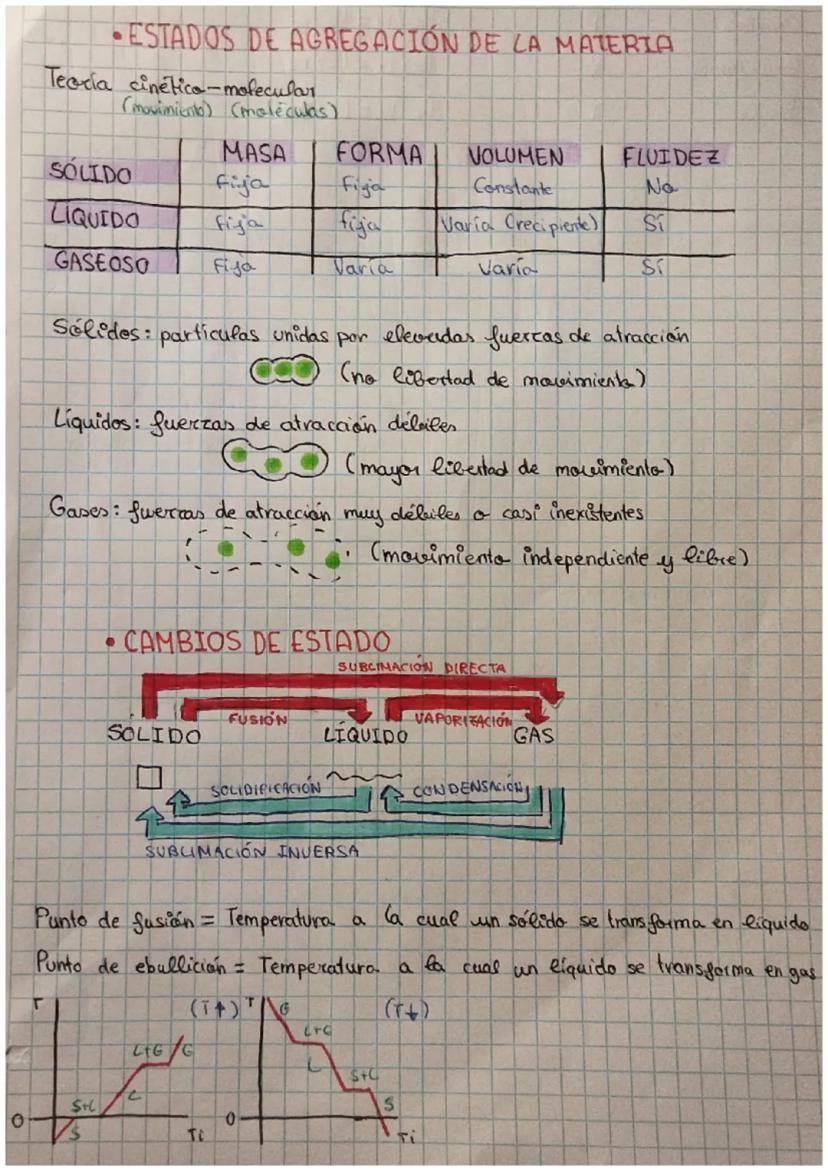 • ESTADOS DE AGREGACIÓN DE LA MATERIA
Teoría cinético-molecular
(movimiento) (moléculas)
MASA FORMA VOLUMEN FLUIDEZ
SÓLIDO Fija Fija Constante No
LÍQUIDO Fija fija Varía (recipiente) Sí
GASEOSO Fija Varía Varía Sí
Sólidos: partículas unidas por elevadas fuerzas de atracción
(no libertad de movimiento)
Líquidos: fuerzas de atracción débiles
(mayor libertad de movimiento)
Gases: fuerzas de atracción muy débiles o casi inexistentes
(movimiento independiente y libre)
• CAMBIOS DE ESTADO
SUBLIMACIÓN DIRECTA
FUSIÓN VAPORIZACIÓN
SÓLIDO LÍQUIDO GAS
SOLIDIFICACIÓN CONDENSACIÓN
SUBLIMACIÓN INVERSA
Punto de fusión = Temperatura a la cual un sólido se transforma en líquido
Punto de ebullición = Temperatura a la cual un líquido se transforma en gas
T (T↑) T G (T↓)
L+G G L+G
L S+L
S+L L S
0 S Ti 0 Ti